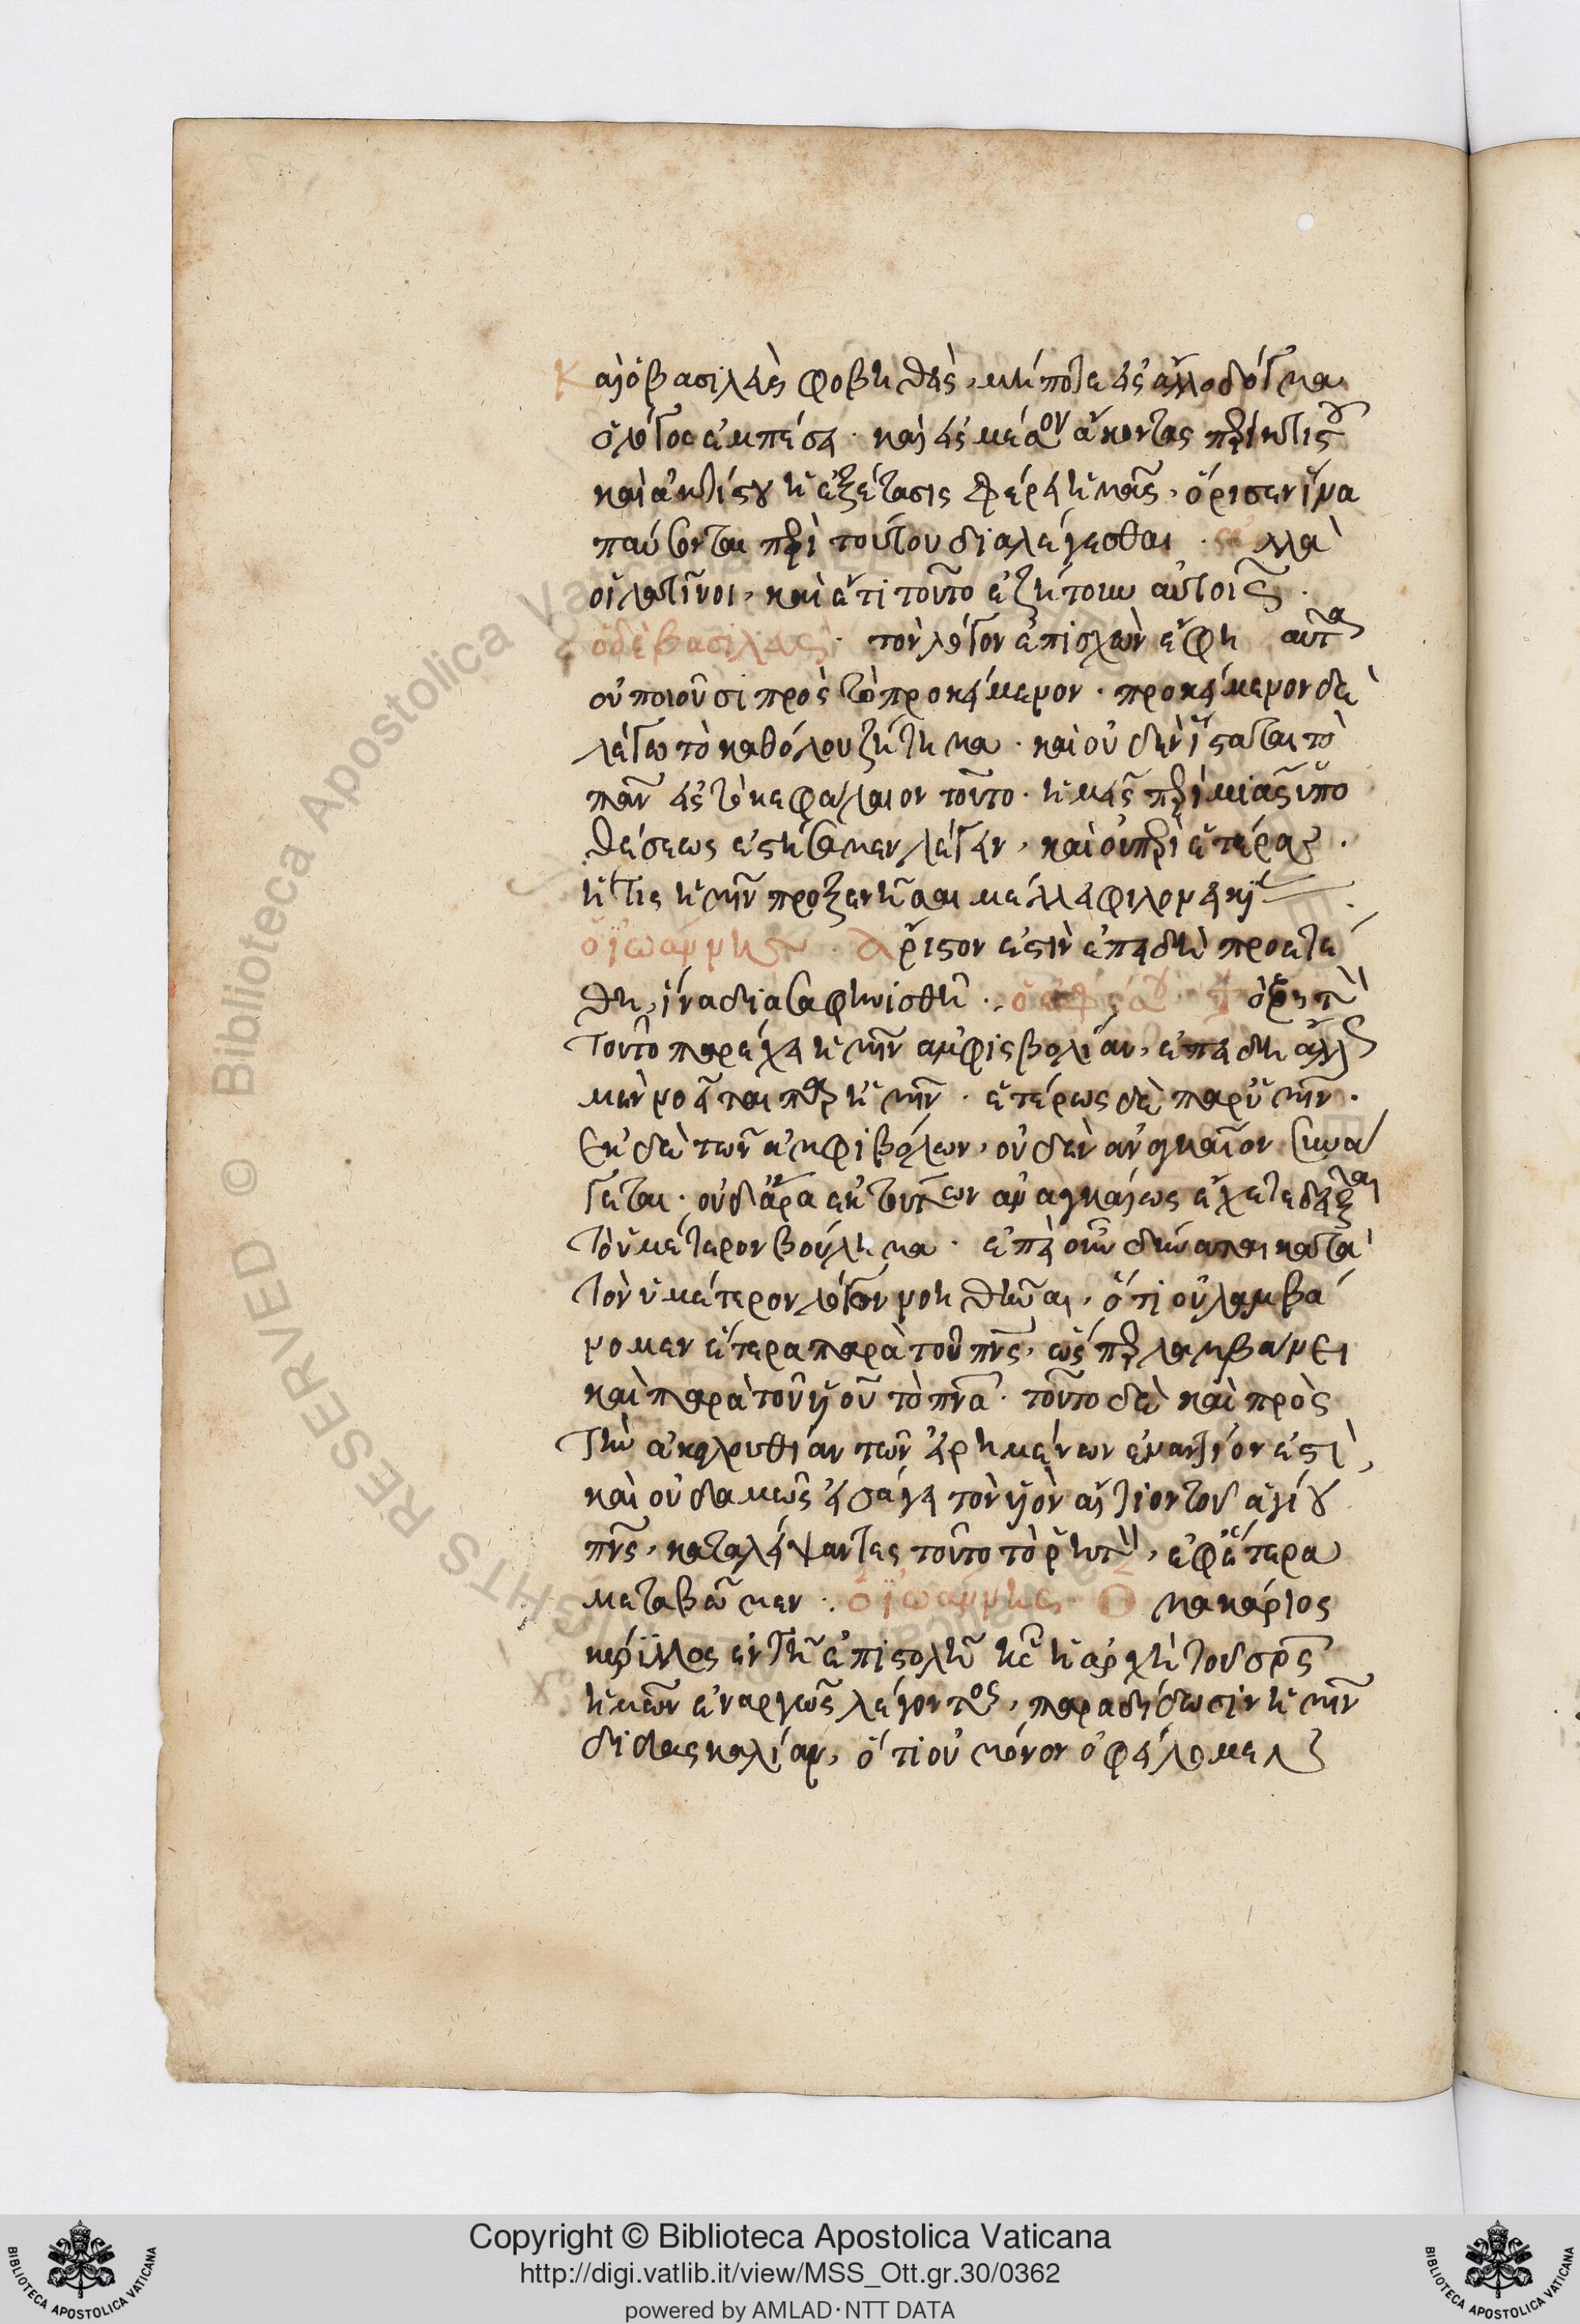 Καὶ ὁ βασιλεὺς φοβηθεὶς, μήποτε εἰς ἄλλο δόγμα
ὁ λόγος ἐμπέσῃ· καὶ εἰς μέσον ἄκοντας περὶ κτιστοῦ
καὶ ἀκτίστου ἡ ἐξέτασις φέρει ἡμᾶς, ὅρισεν ἵνα
παύσωνται περὶ τούτου διαλέγεσθαι· ἀλλὰ
οἱ λατῖνοι, καὶ ἔτι τοῦτο ἐζήτουν αὐτοῖς·
ὁ δὲ βασιλεὺς· τὸν λόγον ἐπισχὼν ἔφη αὐτὰ
οὐ ποιοῦσι πρὸς τὸ προκείμενον· προκείμενον δὲ
λέγω τὸ καθόλου ζήτημα· καὶ οὐδὲν ἵσταται τὸ
πᾶν εἰς τὸ κεφάλαιον τοῦτο· ἡμεῖς περὶ μιᾶς ὑπο
θέσεως ἐστήσαμεν λέγειν, καὶ οὐ περὶ ἑτέρας·
ἥτις ἡμῖν προξενῆσαι μέλλει φιλονεικίαν·
ὁ ἰωάννης· ἄριστόν ἐστιν ἐπειδὴ προετέ
θη, ἵνα διασαφηνισθῇ· ὁ ἐφέσου· τὸ ῥητὸν
τοῦτο παρέχει ἡμῖν ἀμφισβολίαν, ἐπειδὴ ἄλλως
μὲν νοεῖται παρ' ὑμῖν· ἑτέρως δὲ παρ' ἡμῖν·
ἐκ δὲ τῶν ἀμφιβόλων, οὐδὲν ἀναγκαῖον συνά
γεται· οὐδ' ἄρα ἐκ τούτων ἀναγκαίως ἔχετε δεῖξαι
τὸ ὑμέτερον βούλημα· ἐπεὶ οὖν δύναται κατὰ
τὸν ὑμέτερον λόγον νοηθῆναι, ὅτι οὐ λαμβά
νομεν ἕτερα παρὰ τοῦ πνς, ὥσπερ λαμβάνει
καὶ παρὰ τοῦ υἱοῦ τὸ πνα· τοῦτο δὲ καὶ πρὸς
τὴν ἀκολουθίαν τῶν εἰρημένων ἐναντίον ἐστὶ,
καὶ οὐδαμῶς εἰσάγει τὸν υἱὸν αἴτιον τοῦ ἁγίου
πνς, καταλείψαντες τοῦτο τὸ ῥητὸν, ἐφ' ἕτερα
μεταβῶμεν· ὁ ἰωάννης· Ὁ μακάριος
κύριλλος ἐν τῇ ἐπιστολῇ ἧς ἡ ἀρχὴ τοῦ σρς
ἡμῶν ἐναργῶς λέγοντος, παραδίδωσιν ἡμῖν
διδασκαλίαν, ὅτι οὐ μόνον ὀφείλομεν